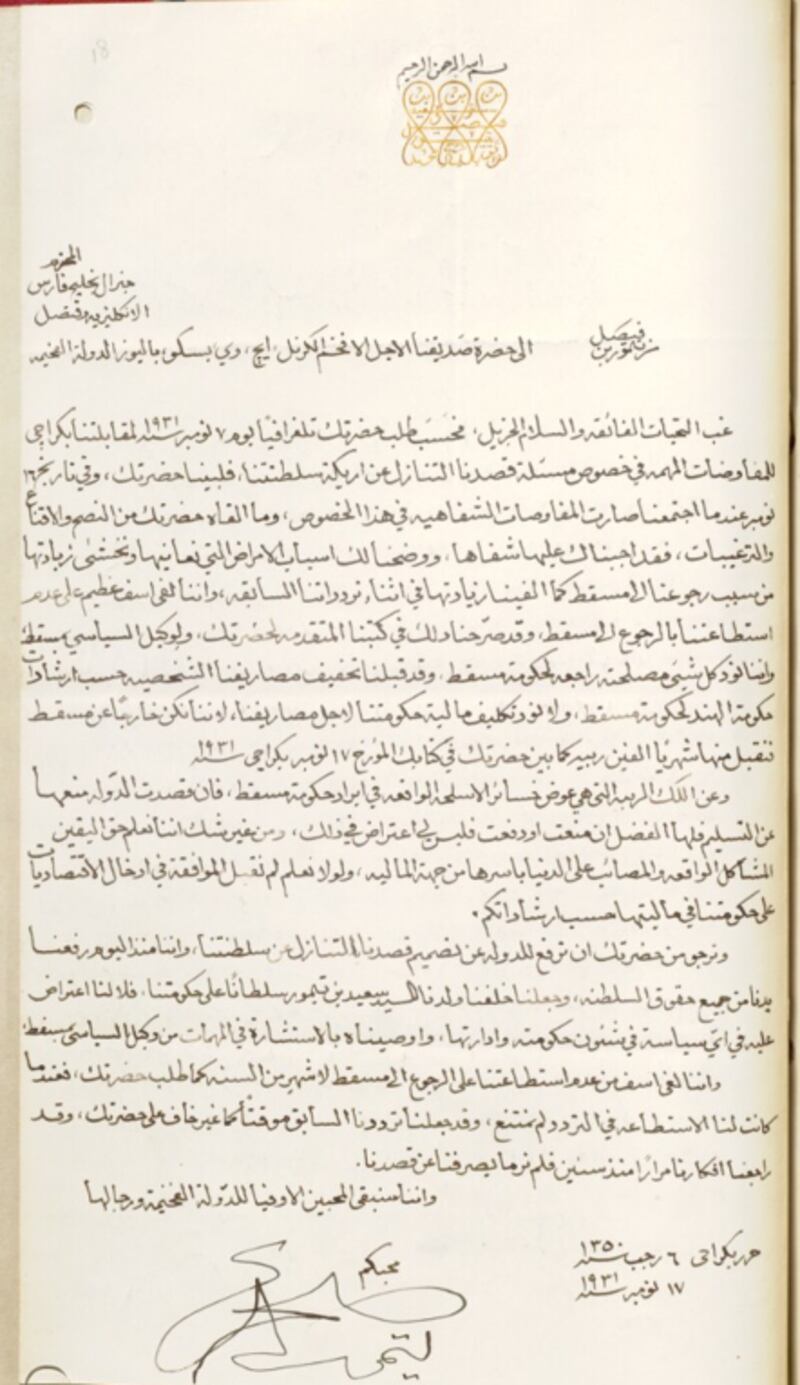 18
بسم الله الرحمن الرحيم
المحترم
جنرال بخليج فارس
الانكليزيه وقنصل
فيصل
تيمور بن
الى حضرة صديقنا الاجل الافخم الكرنل، ايچ، وي بسكو باليوز الدولة الفخيمه
غب التحيات الفائقه والسلام الجزيل، فحسب طلب حضرتك تلغرافيًا يوم ٧ نومبر سنة ١٩٣١ لمقابلتنا بكراچي
للمفاوضات المهمه في خصوص مسئلة قصدنا التنازل عن اريكة سلطنتنا، فلبينا حضرتك، وفي تاريخ ١٦
نومبر عندما اجتمعنا صارت المفاوضات الشفاهيه في هذا الخصوص، وما القاه حضرتك من النصح والاقناع
والترغيبات، فقد اجبناك عليها شفاها، ووضحنا لك اسباب الامراض التي نعانيها ونخشى زيادتها
من سبب رجوعنا الى مسقط كما الفينا زيادتها في اثناء تردداتنا السابقه، واننا لفي اسف عظيم على عدم
استطاعتنا بالرجوع الى مسقط، وقد صرّحنا ذلك في كتبنا المتقدمه لحضرتك، ولوكيل السياسي بمسقط
واننا نود كل شيئ مصلحته راجعه لحكومة مسقط، وقد قبلنا تخفيف مصاريفنا الشخصيه حسب ارشادات
حكومة الهند لحكومة مسقط، ولا نود تكليف مالية حكومتنا لاجل مصاريفنا، لاننا نكن خارجًا عن مسقط
فنقبل منها شهريًا الفين ربيه كما بين حضرتك في كتابك المؤرخ ١٧ نومبر بكراچي سنة ١٩٣١
وعن اللك الربية التي هي عوض خسائر الاسلحة الواقعه في ايراد حكومة مسقط، فان قصدت الدّوله منعها
عن التسليم فلها الفضل ان منعت او دفعت فليس لي اعتراض في ذلك، ومن غير شك اننا نعلم حق اليقين
المشاكل الواقعه والمصائب على الدنيا باسرها من جهة الماليه، ولولا نعلم لم نقبل الموافقة في ادخال الاقتصاديات
على حكومتنا في ماليتها حسب ارشاداتكم.
ونرجو من حضرتك ان ترفع للدوله عن تصميم قصدنا التنازل عن سلطنتنا، واننا منذ اليوم رفعنا
يدنا من جميع حقوق السلطنه، وجعلنا خلفنا ولدنا السيد سعيد بن تيمور سلطانًا على حكومتنا، فلا لنا اعتراض
عليه في اي سياسة في شئون حكومته وادارتها، واوصيناه بالاستشارة في المهمات من وكيل السياسي بمسقط،
واننا لفي اسف من عدم استطاعتنا على الرجوع الى مسقط لاشهر من السنه كما طلب حضرتك، فعندما
كانت لنا الاستطاعه في التردد لم نمتنع، وقد جعلنا ترددنا السابق موقتًا كما غير خاف على حضرتك، وقد
راجعنا افكارنا مرارًا منذ سنين فلم نر ما يصرفنا عن قصدنا.
واننا سنبقى المحبين الاوفيا للدّولة الفخيمة ورجالها
حرر بكراچي ٦ رجب سنة ١٣٥٠
١٧ نومبر سنة ١٩٣١
محبكم